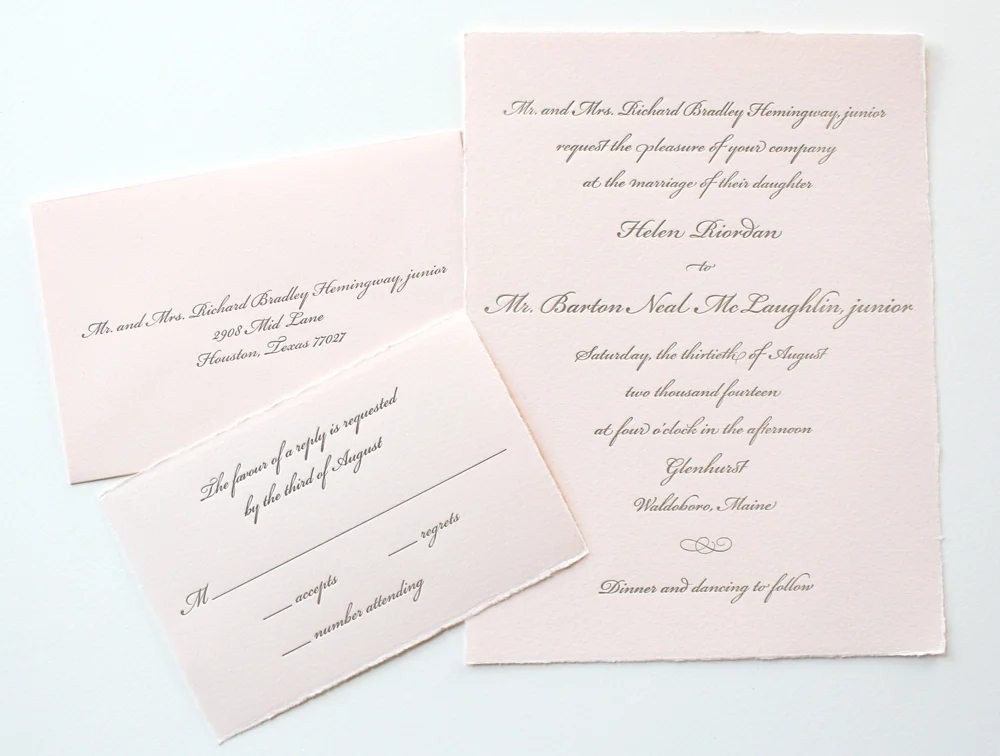 Mr. and Mrs. Richard Bradley Hemingway, junior
request the pleasure of your company
at the marriage of their daughter
Helen Riordan
to
Mr. Barton Neal McLaughlin, junior
Saturday, the thirtieth of August
two thousand fourteen
at four o'clock in the afternoon
Glenhurst
Waldoboro, Maine
Dinner and dancing to follow
Mr. and Mrs. Richard Bradley Hemingway, junior
2908 Mid Lane
Houston, Texas 77027
The favour of a reply is requested
by the third of August
M
accepts
regrets
number attending